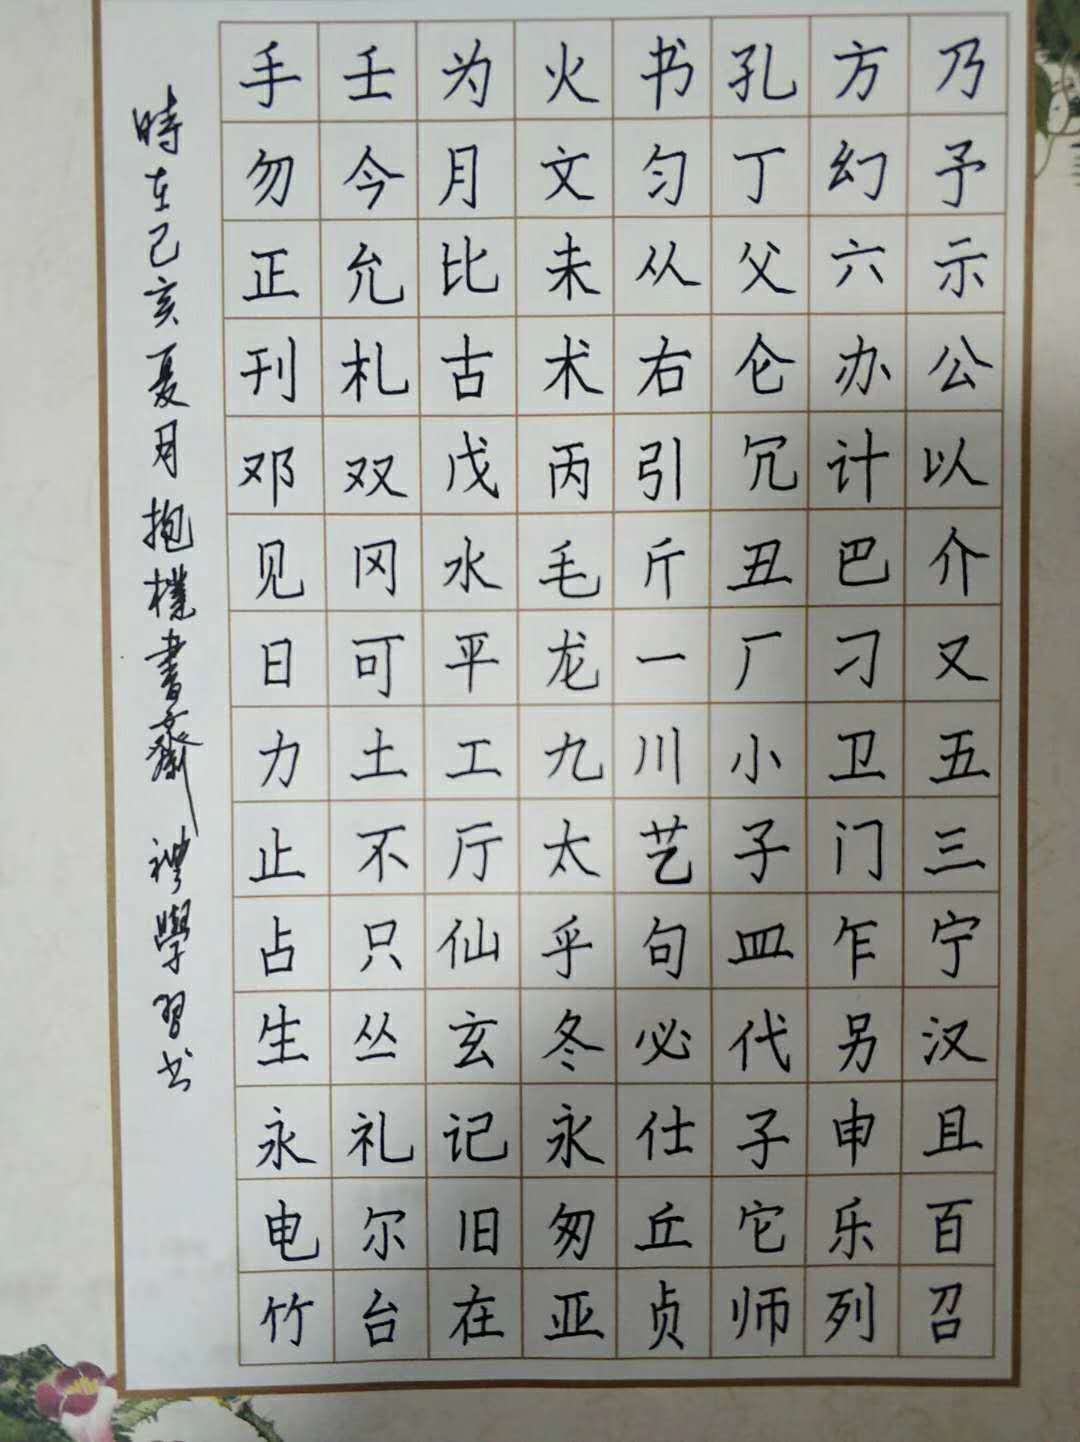 乃予示公以介又五三宁汉且百召
方幻六办计巴刁卫门乍另申乐列
孔丁父仑冗丑厂小子皿代子它师
书匀从右引斤一川艺句必仕丘贞
火文未术丙毛龙九太乎冬永匆亚
为月比古戊水平工厅仙玄记旧在
壬今允札双冈可土不只丛礼尔台
手勿正刊邓见日力止占生永电竹
時在己亥夏月抱樸書齋 學習书